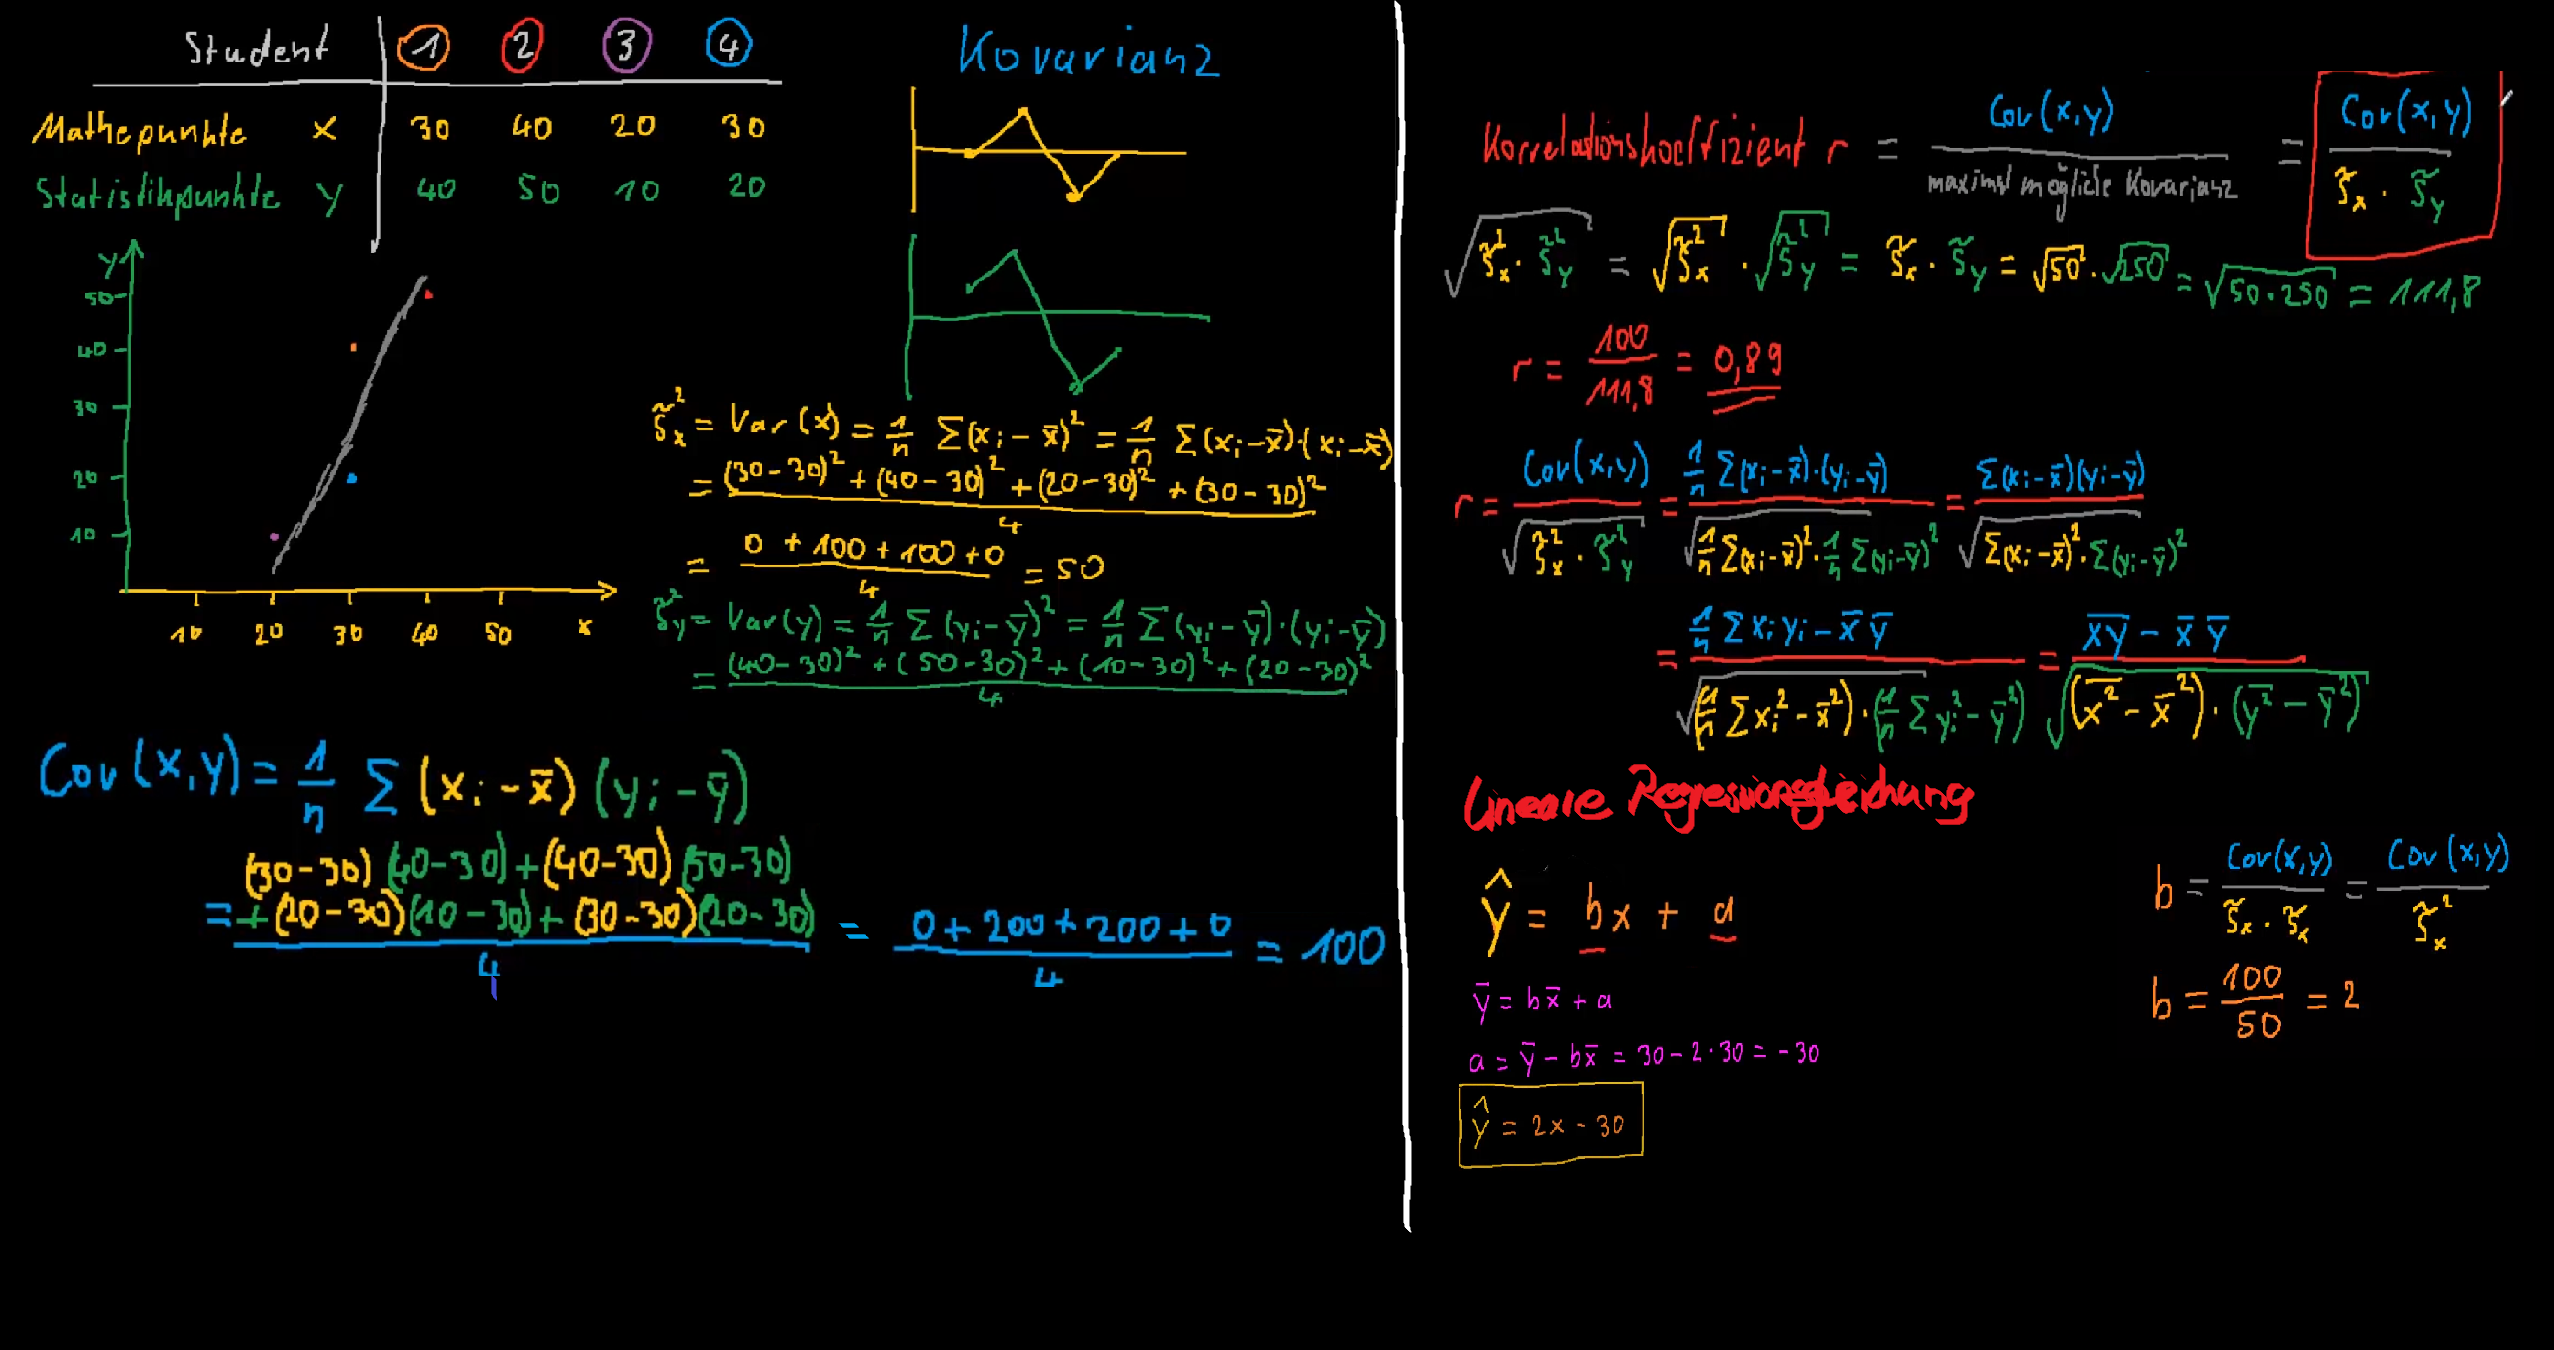 Student 1 2 3 4
Mathepunkte x 30 40 20 30
Statistikpunkte y 40 50 10 20
Kovarianz
y
50
40
30
20
10
10 20 30 40 50 x
s̃ₓ² = Var(x) = 1/n Σ(xᵢ - x̄)² = 1/n Σ(xᵢ - x̄)·(xᵢ - x̄)
= ((30-30)² + (40-30)² + (20-30)² + (30-30)²)/4
= (0 + 100 + 100 + 0)/4 = 50
s̃ᵧ² = Var(y) = 1/n Σ(yᵢ - ȳ)² = 1/n Σ(yᵢ - ȳ)·(yᵢ - ȳ)
= ((40-30)² + (50-30)² + (10-30)² + (20-30)²)/4
Cov(x,y) = 1/n Σ(xᵢ - x̄)(yᵢ - ȳ)
= ((30-30)(40-30) + (40-30)(50-30)
+ (20-30)(10-30) + (30-30)(20-30))/4 = (0 + 200 + 200 + 0)/4 = 100
Korrelationskoeffizient r = Cov(x,y)/maximal mögliche Kovarianz = Cov(x,y)/(s̃ₓ · s̃ᵧ)
√(s̃ₓ² · s̃ᵧ²) = √(s̃ₓ²) · √(s̃ᵧ²) = s̃ₓ · s̃ᵧ = √50 · √250 = √(50·250) = 111,8
r = 100/111,8 = 0,89
r = Cov(x,y)/√(s̃ₓ² · s̃ᵧ²) = (1/n Σ(xᵢ - x̄)·(yᵢ - ȳ))/√(1/n Σ(xᵢ - x̄)² · 1/n Σ(yᵢ - ȳ)²) = (Σ(xᵢ - x̄)(yᵢ - ȳ))/√(Σ(xᵢ - x̄)² · Σ(yᵢ - ȳ)²)
= (1/n Σxᵢyᵢ - x̄ȳ)/√((1/n Σxᵢ² - x̄²)·(1/n Σyᵢ² - ȳ²)) = (x̅y̅ - x̄ ȳ)/√((x̅²̅ - x̄²)·(y̅²̅ - ȳ²))
Lineare Regressionsgleichung
ŷ = bx + a
ȳ = bx̄ + a
a = ȳ - bx̄ = 30 - 2·30 = -30
ŷ = 2x - 30
b = Cov(x,y)/(s̃ₓ · s̃ₓ) = Cov(x,y)/s̃ₓ²
b = 100/50 = 2